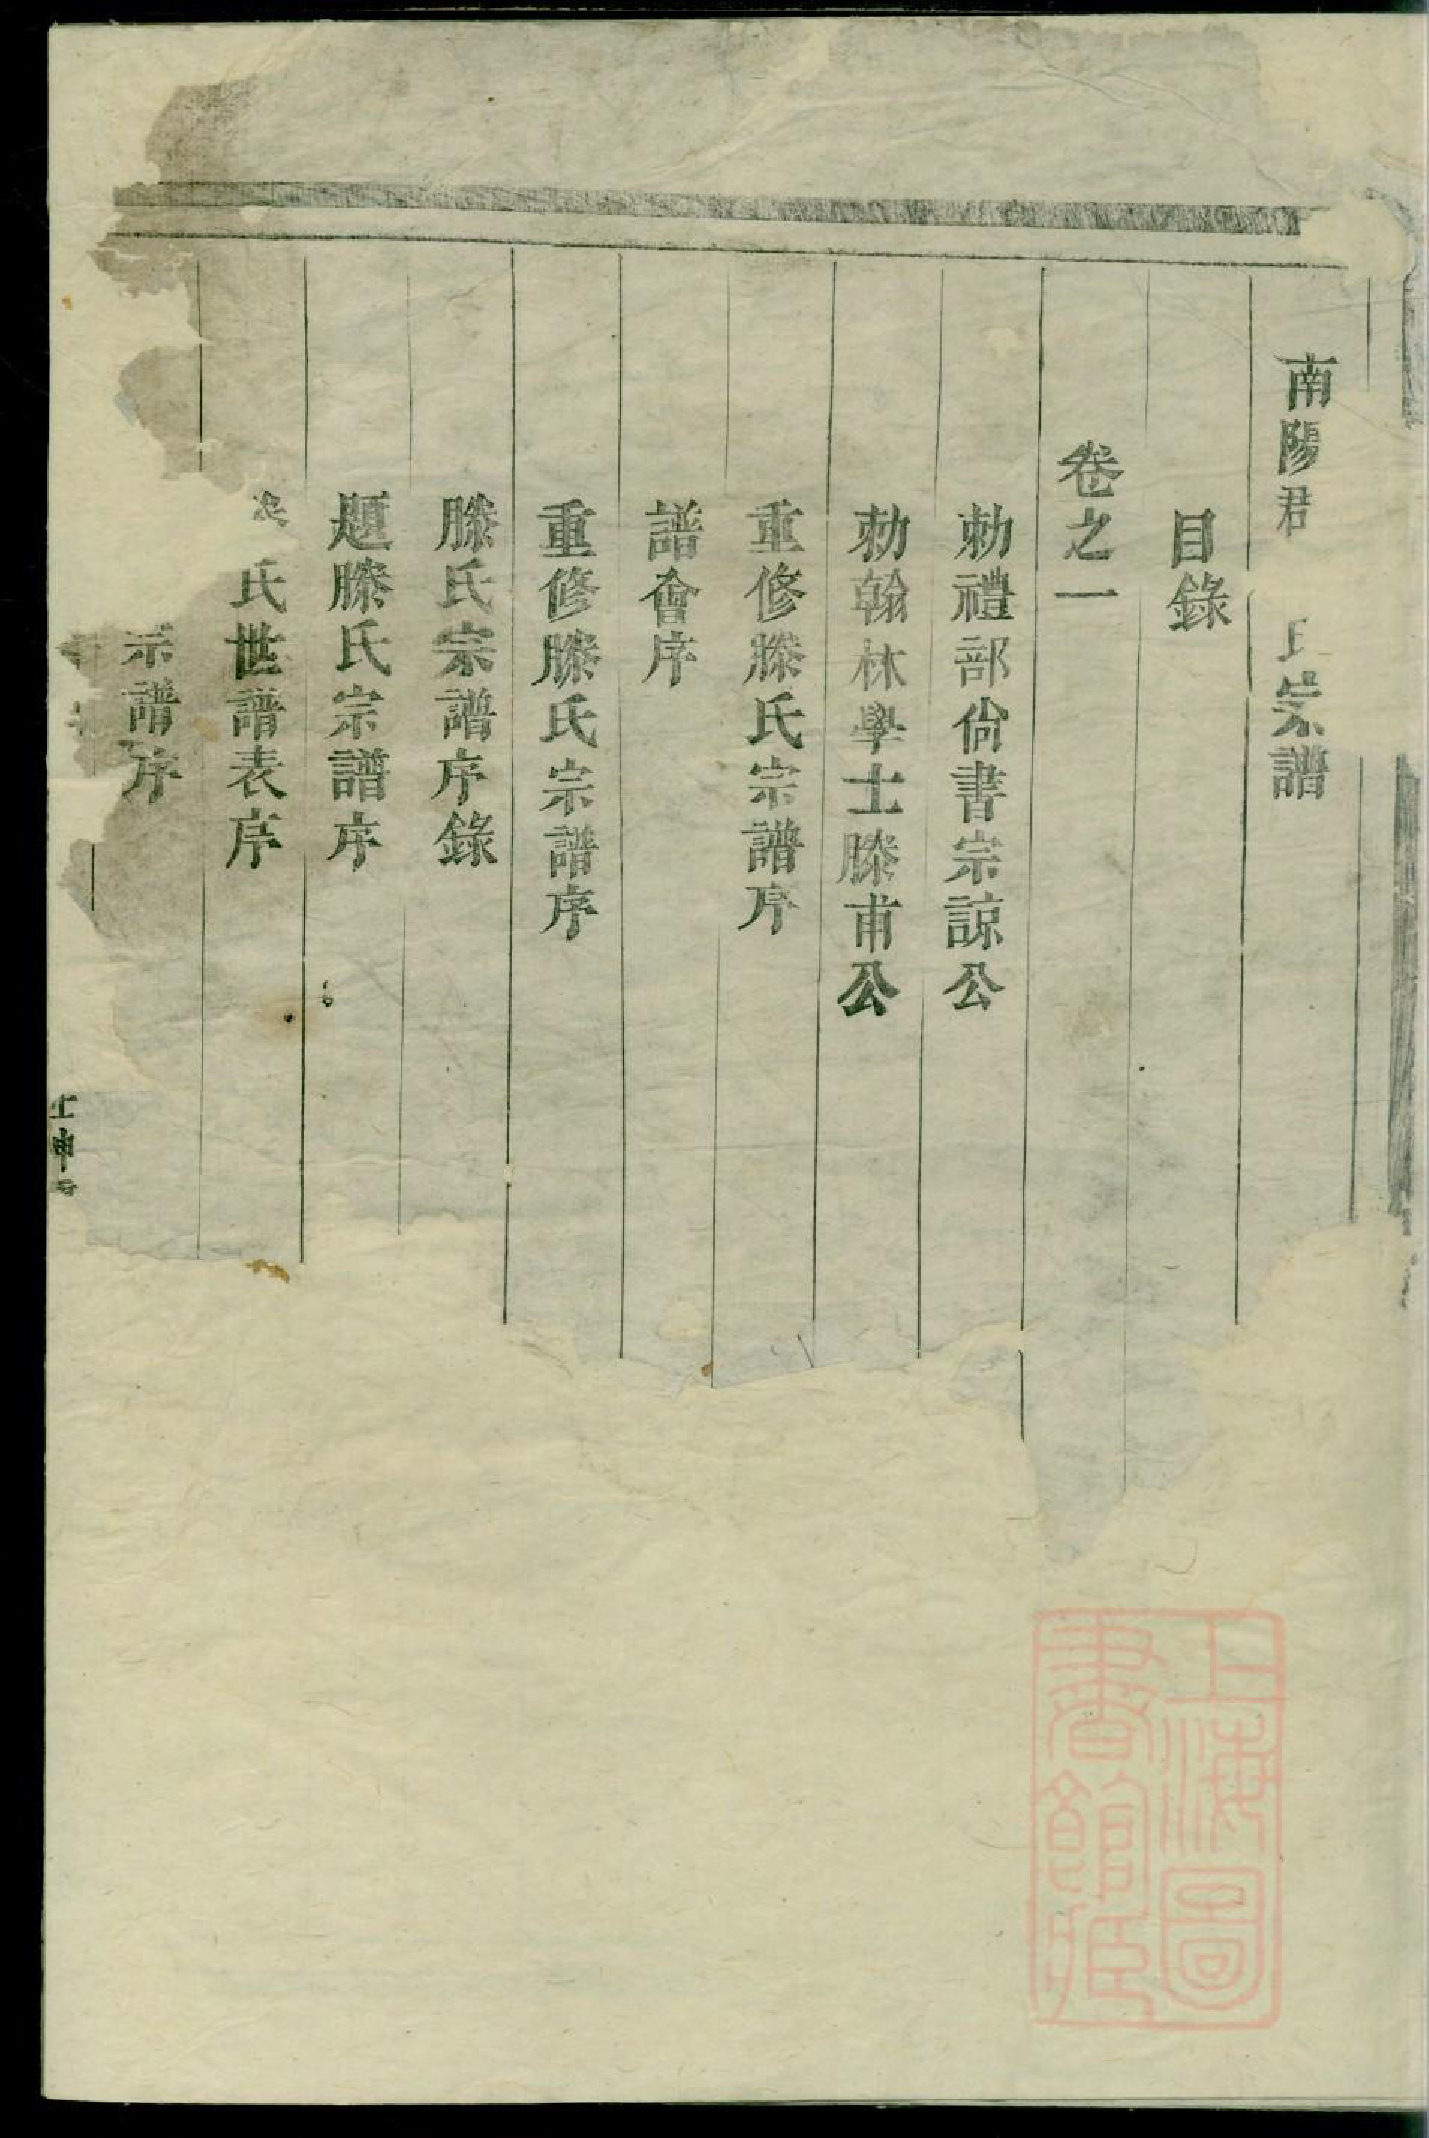 南陽 氏宗譜
目錄
卷之一
勅禮部尙書宗諒公
勅翰林學士滕甫公
重修滕氏宗譜序
譜會序
重修滕氏宗譜序
滕氏宗譜序錄
題滕氏宗譜序
氏世譜表序
宗譜序
上海圖
書館